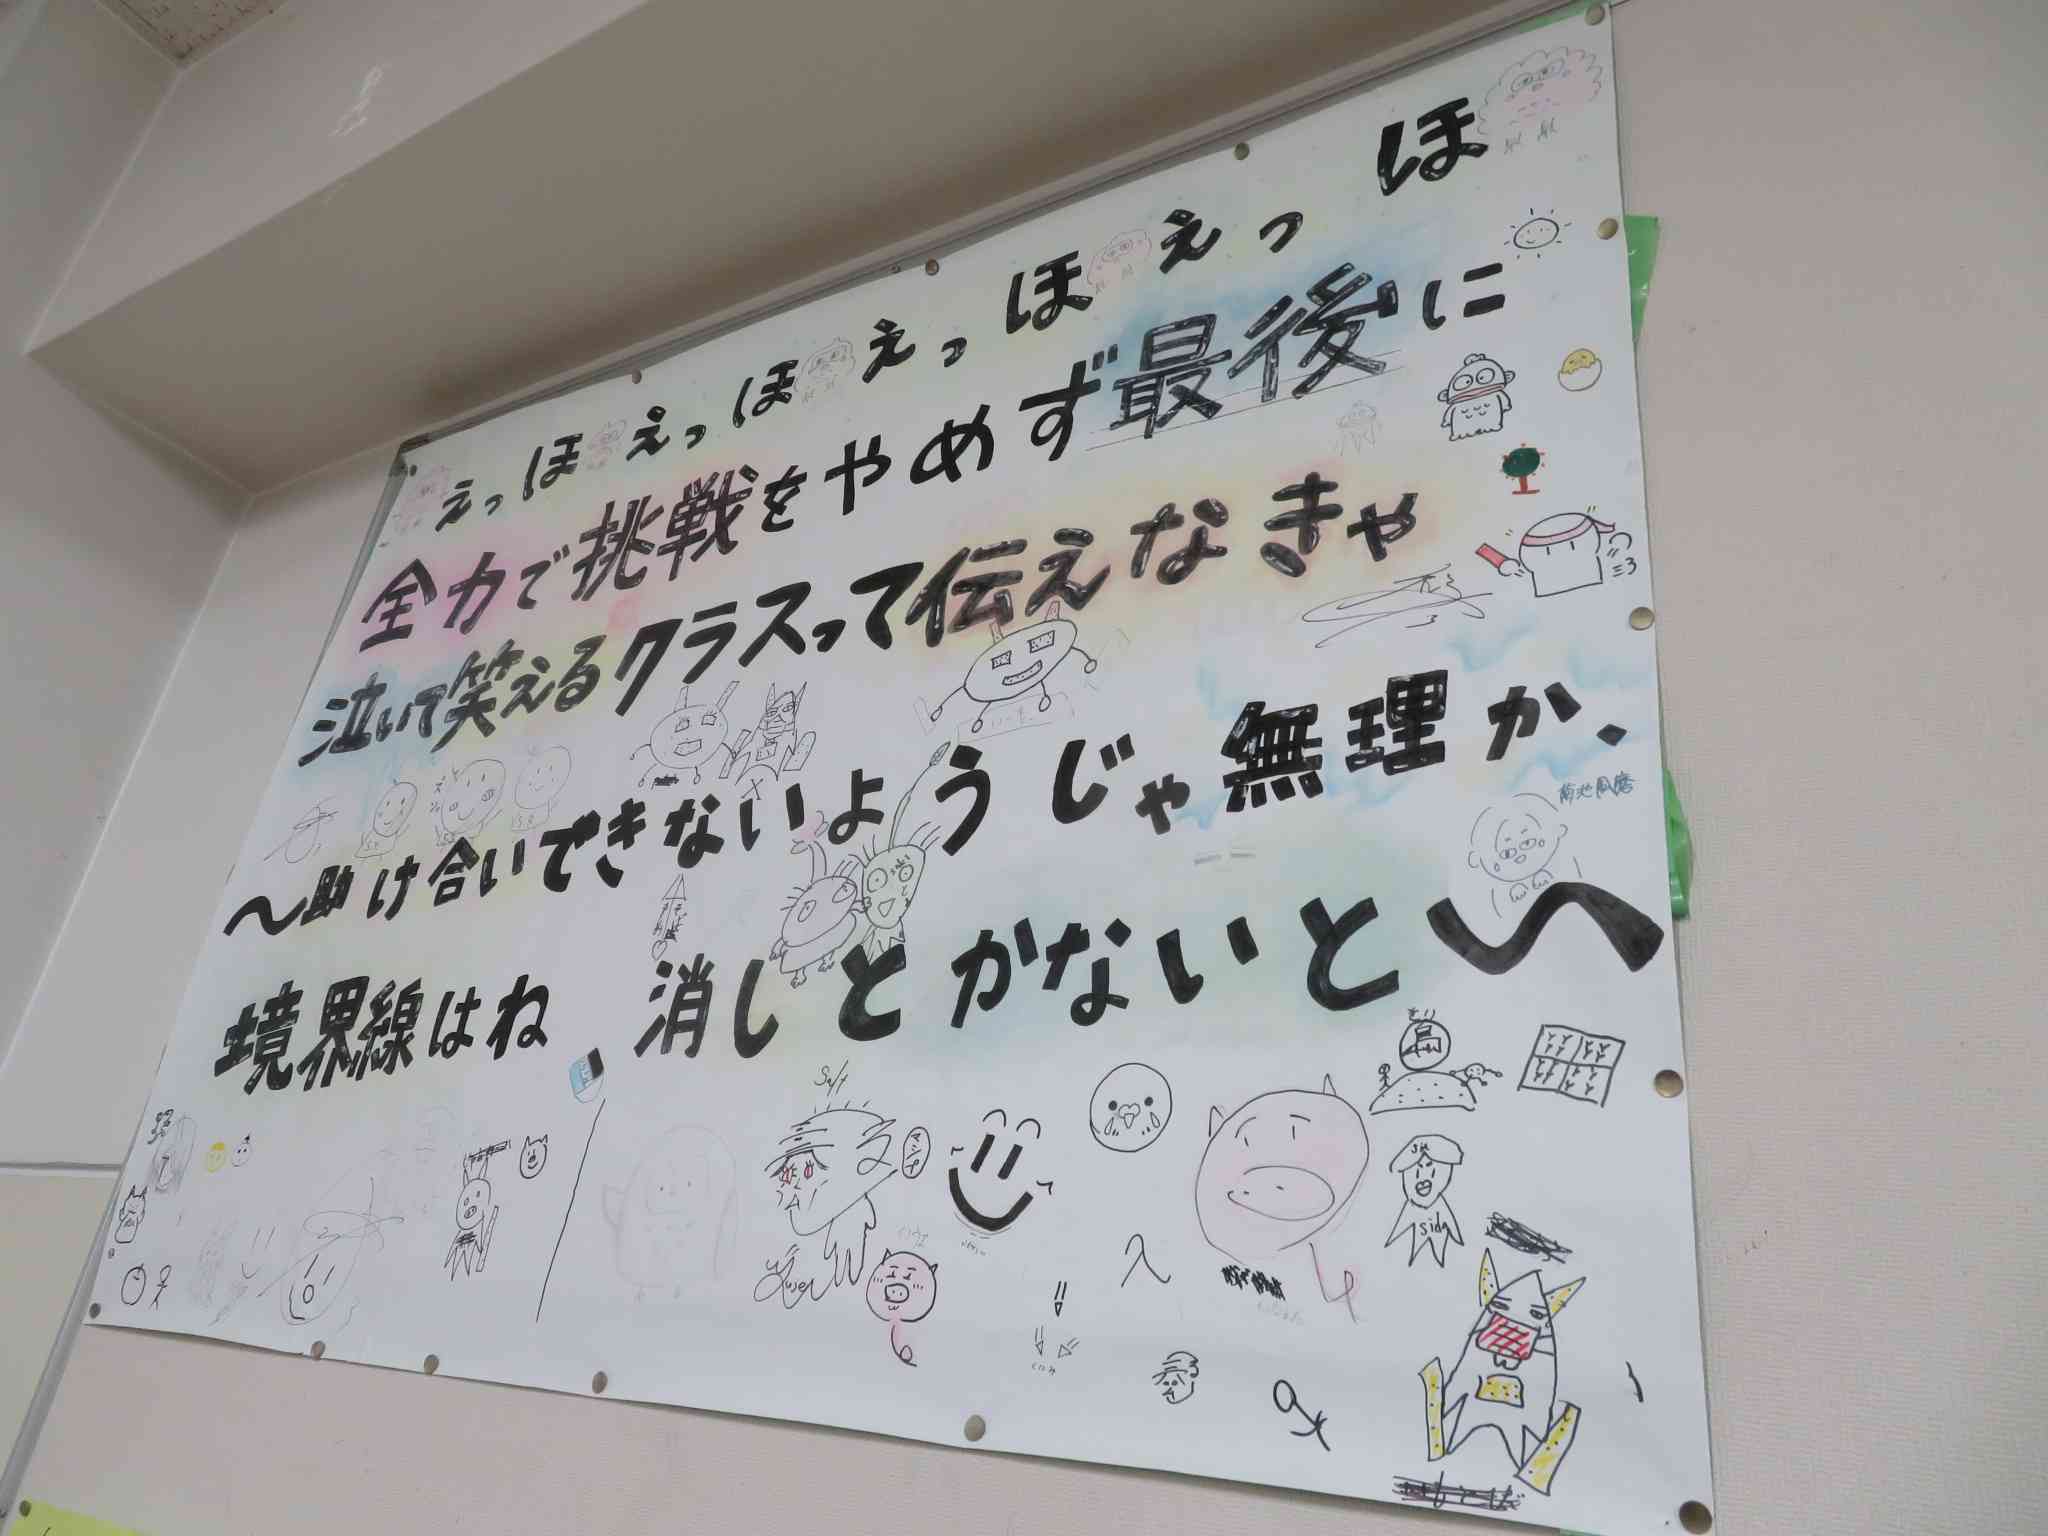 えっほ えっほ えっほ えっほ
全力で挑戦をやめず最後に
泣いて笑えるクラスって伝えなきゃ
～助け合いできないようじゃ無理か、
境界線はね、消しとかないと～
菊池風磨
Salt
マンプ
sik
side
くいみ